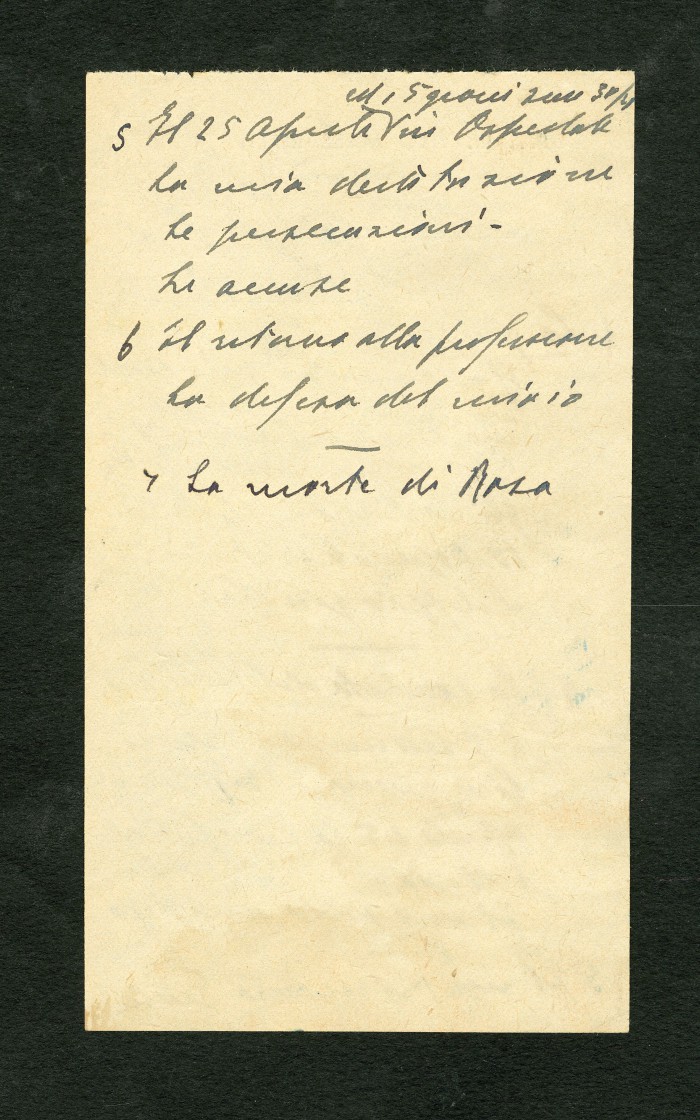 ed i 5 giorni
5 Il 25 Aprile in Ospedale
La mia destituzione
Le persecuzioni -
Le accuse
6 Il ritorno alla professione
La difesa del
7 La morte di Rosa